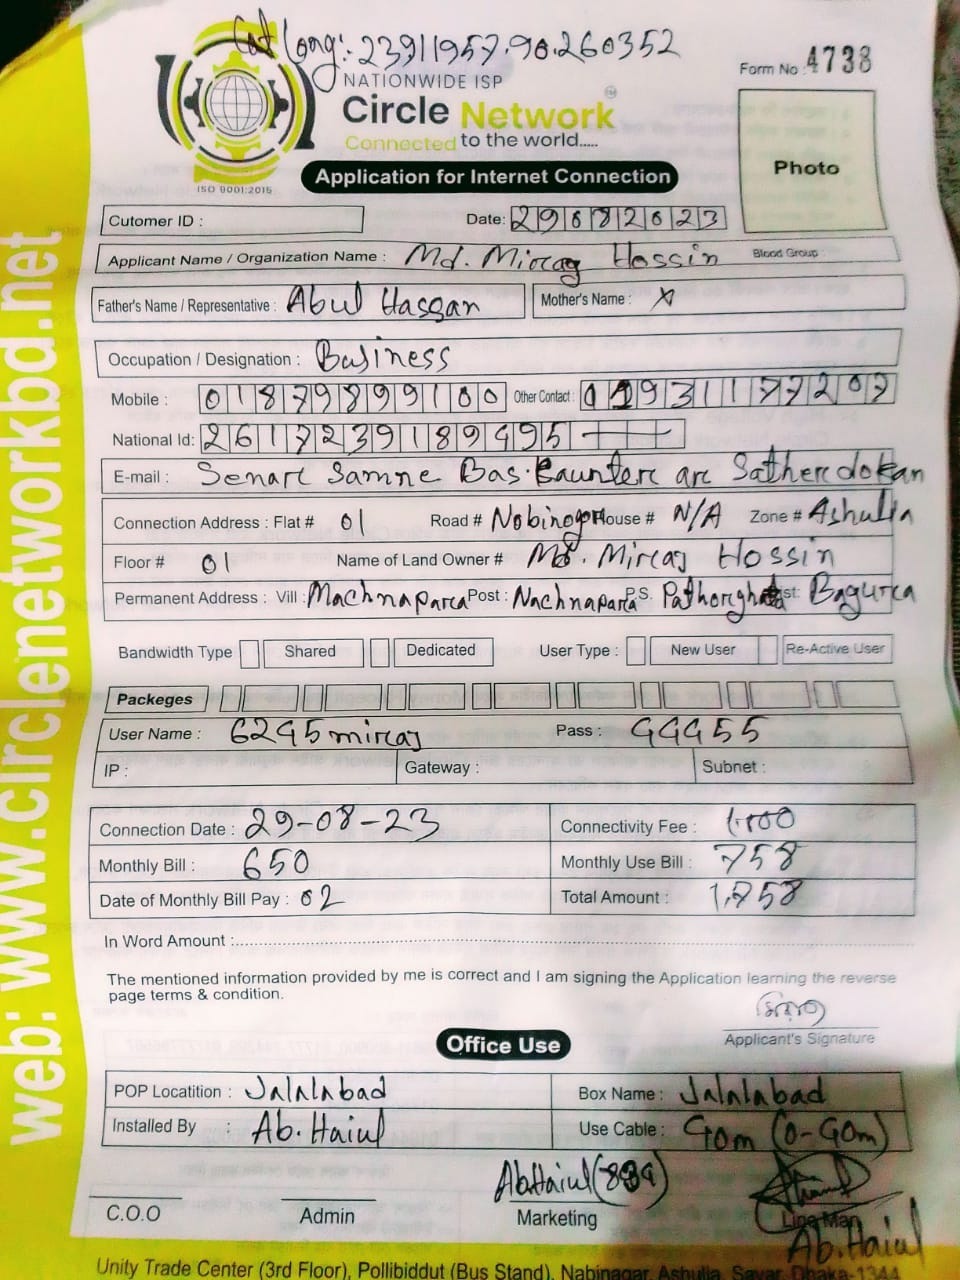 Lat Long: 23911957.90.260352
NATIONWIDE ISP
Form No : 4738
Circle Network
Connected to the world.....
ISO 9001:2015
Photo
Application for Internet Connection
Cutomer ID :
Date: 29082023
Applicant Name / Organization Name : Md. Mircag Hossin Blood Group :
Father's Name / Representative : Abul Hassan Mother's Name : X
Occupation / Designation : Business
Mobile : 01879899100 Other Contact :
National Id: 2617239189495
E-mail : Senarc Samne Bas Caunterc arc Satherc dokan
Connection Address : Flat # 01 Road # Nobinogor House # N/A Zone # Ashulia
Floor # 01 Name of Land Owner # Md. Mircag Hossin
Permanent Address : Vill : Machnaparca Post : Nachnaparca P.S. st: Bagurca
Bandwidth Type Shared Dedicated User Type : New User Re-Active User
Packeges
User Name : 6295mircaj Pass : 99955
IP : Gateway : Subnet :
Connection Date : 29-08-23 Connectivity Fee : 1,000
Monthly Bill : 650 Monthly Use Bill : 758
Date of Monthly Bill Pay : 02 Total Amount : 1,758
In Word Amount :
The mentioned information provided by me is correct and I am signing the Application learning the reverse
page terms & condition.
Applicant's Signature
Office Use
POP Locatition : Jalalabad Box Name : Jalalabad
Installed By : Ab. Haiul Use Cable : 90m (0-90m)
Ab.Haiul
C.O.O Admin Marketing Line Man
Ab.Haiul
Unity Trade Center (3rd Floor), Pollibiddut (Bus Stand), Nabinagar, Ashulia, Savar, Dhaka-1344
web: www.circlenetworkbd.net